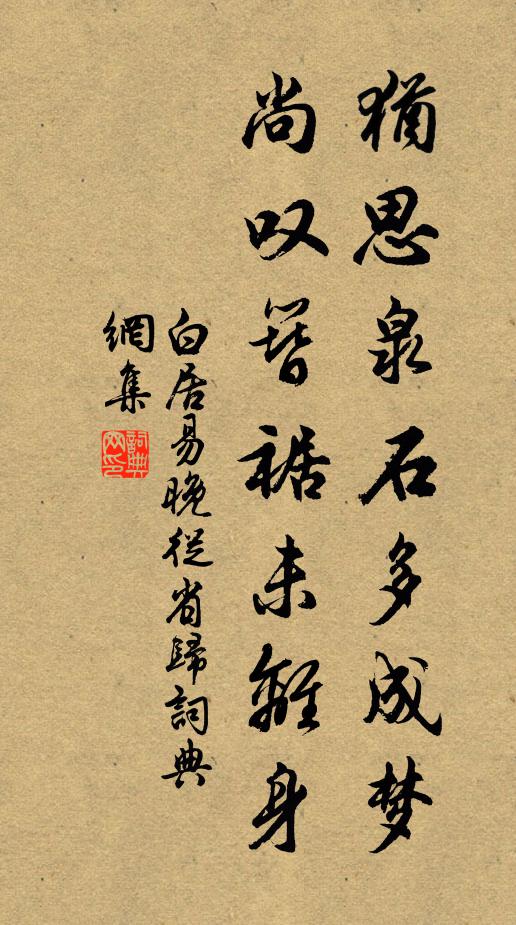 猶思泉石多成梦
尚叹簪裾未離身
白居易晚從省歸詞典
網集
詞典
网印